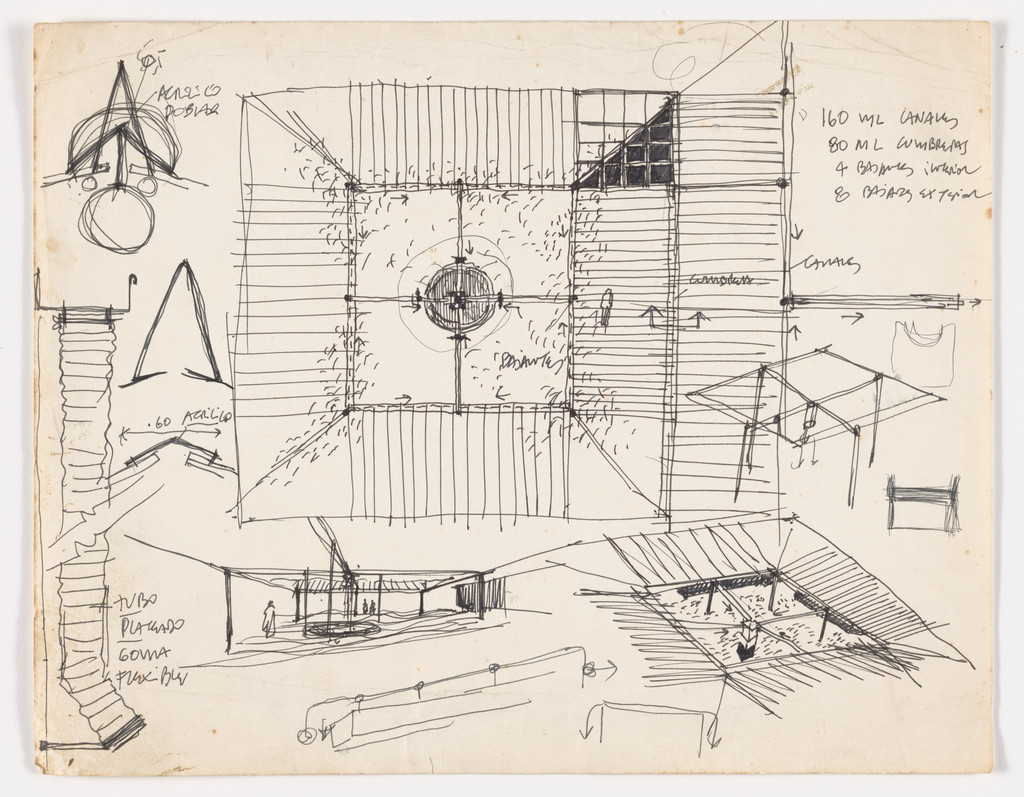 ACRILICO
DOBLAR
160 ML CANALES
80 ML CUMBRERAS
4 BAJANTES INTERIOR
8 BAJANTES EXTERIOR
CANALES
CUMBRERA
BAJANTES
.60 ACRILICO
TUBO
PLAGADO
GOMA
FLEXIBLE